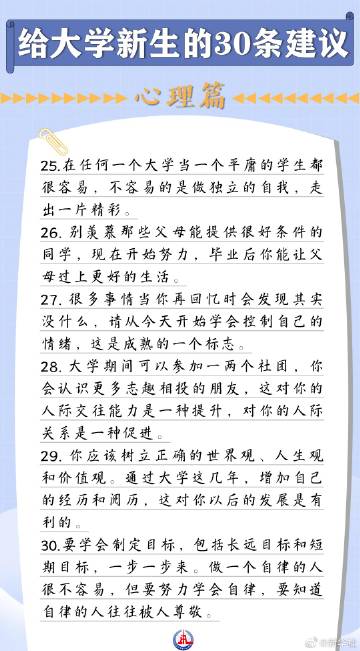 给大学新生的30条建议
心理篇
25.在任何一个大学当一个平庸的学生都
很容易，不容易的是做独立的自我，走
出一片精彩。
26. 别羡慕那些父母能提供很好条件的
同学，现在开始努力，毕业后你能让父
母过上更好的生活。
27. 很多事情当你再回忆时会发现其实
没什么，请从今天开始学会控制自己的
情绪，这是成熟的一个标志。
28. 大学期间可以参加一两个社团，你
会认识更多志趣相投的朋友，这对你的
人际交往能力是一种提升，对你的人际
关系是一种促进。
29. 你应该树立正确的世界观、人生观
和价值观。通过大学这几年，增加自己
的经历和阅历，这对你以后的发展是有
利的。
30.要学会制定目标，包括长远目标和短
期目标，一步一步来。做一个自律的人
很不容易，但要努力学会自律，要知道
自律的人往往被人尊敬。